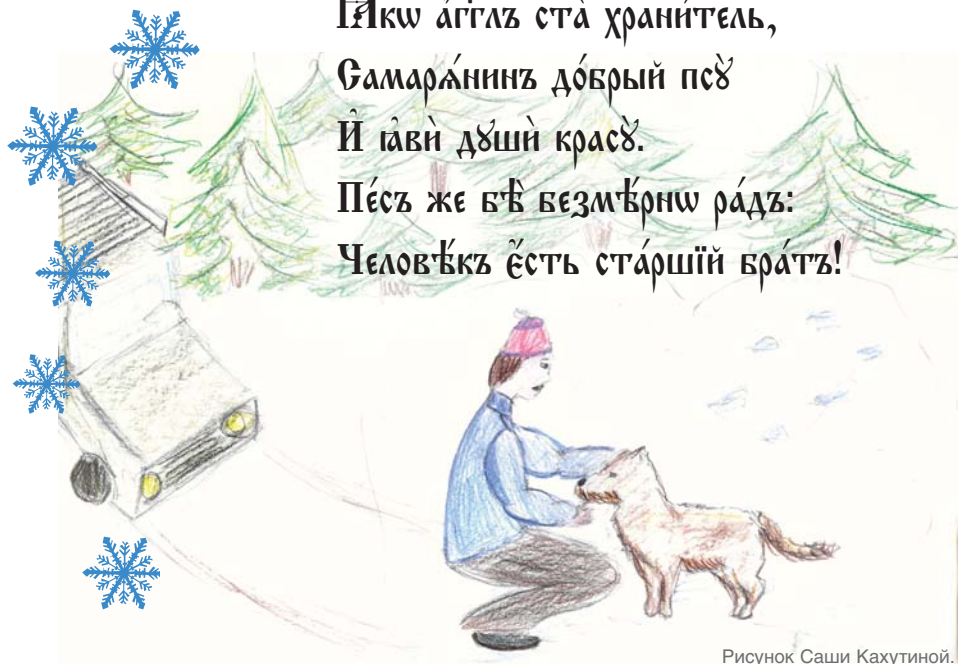 Ꙗ҆́кѡ а҆́гг҃лъ ста̀ храни́тель,
Самарѧ́нинъ до́брый псꙋ̀
И҆ ꙗ҆вѝ дꙋшѝ красꙋ̀.
Пе́съ же бѣ̀ безмѣ́рнѡ ра́дъ:
Человѣ́къ є҆́сть ста́ршїй бра́тъ!
Рисунок Саши Кахутиной.